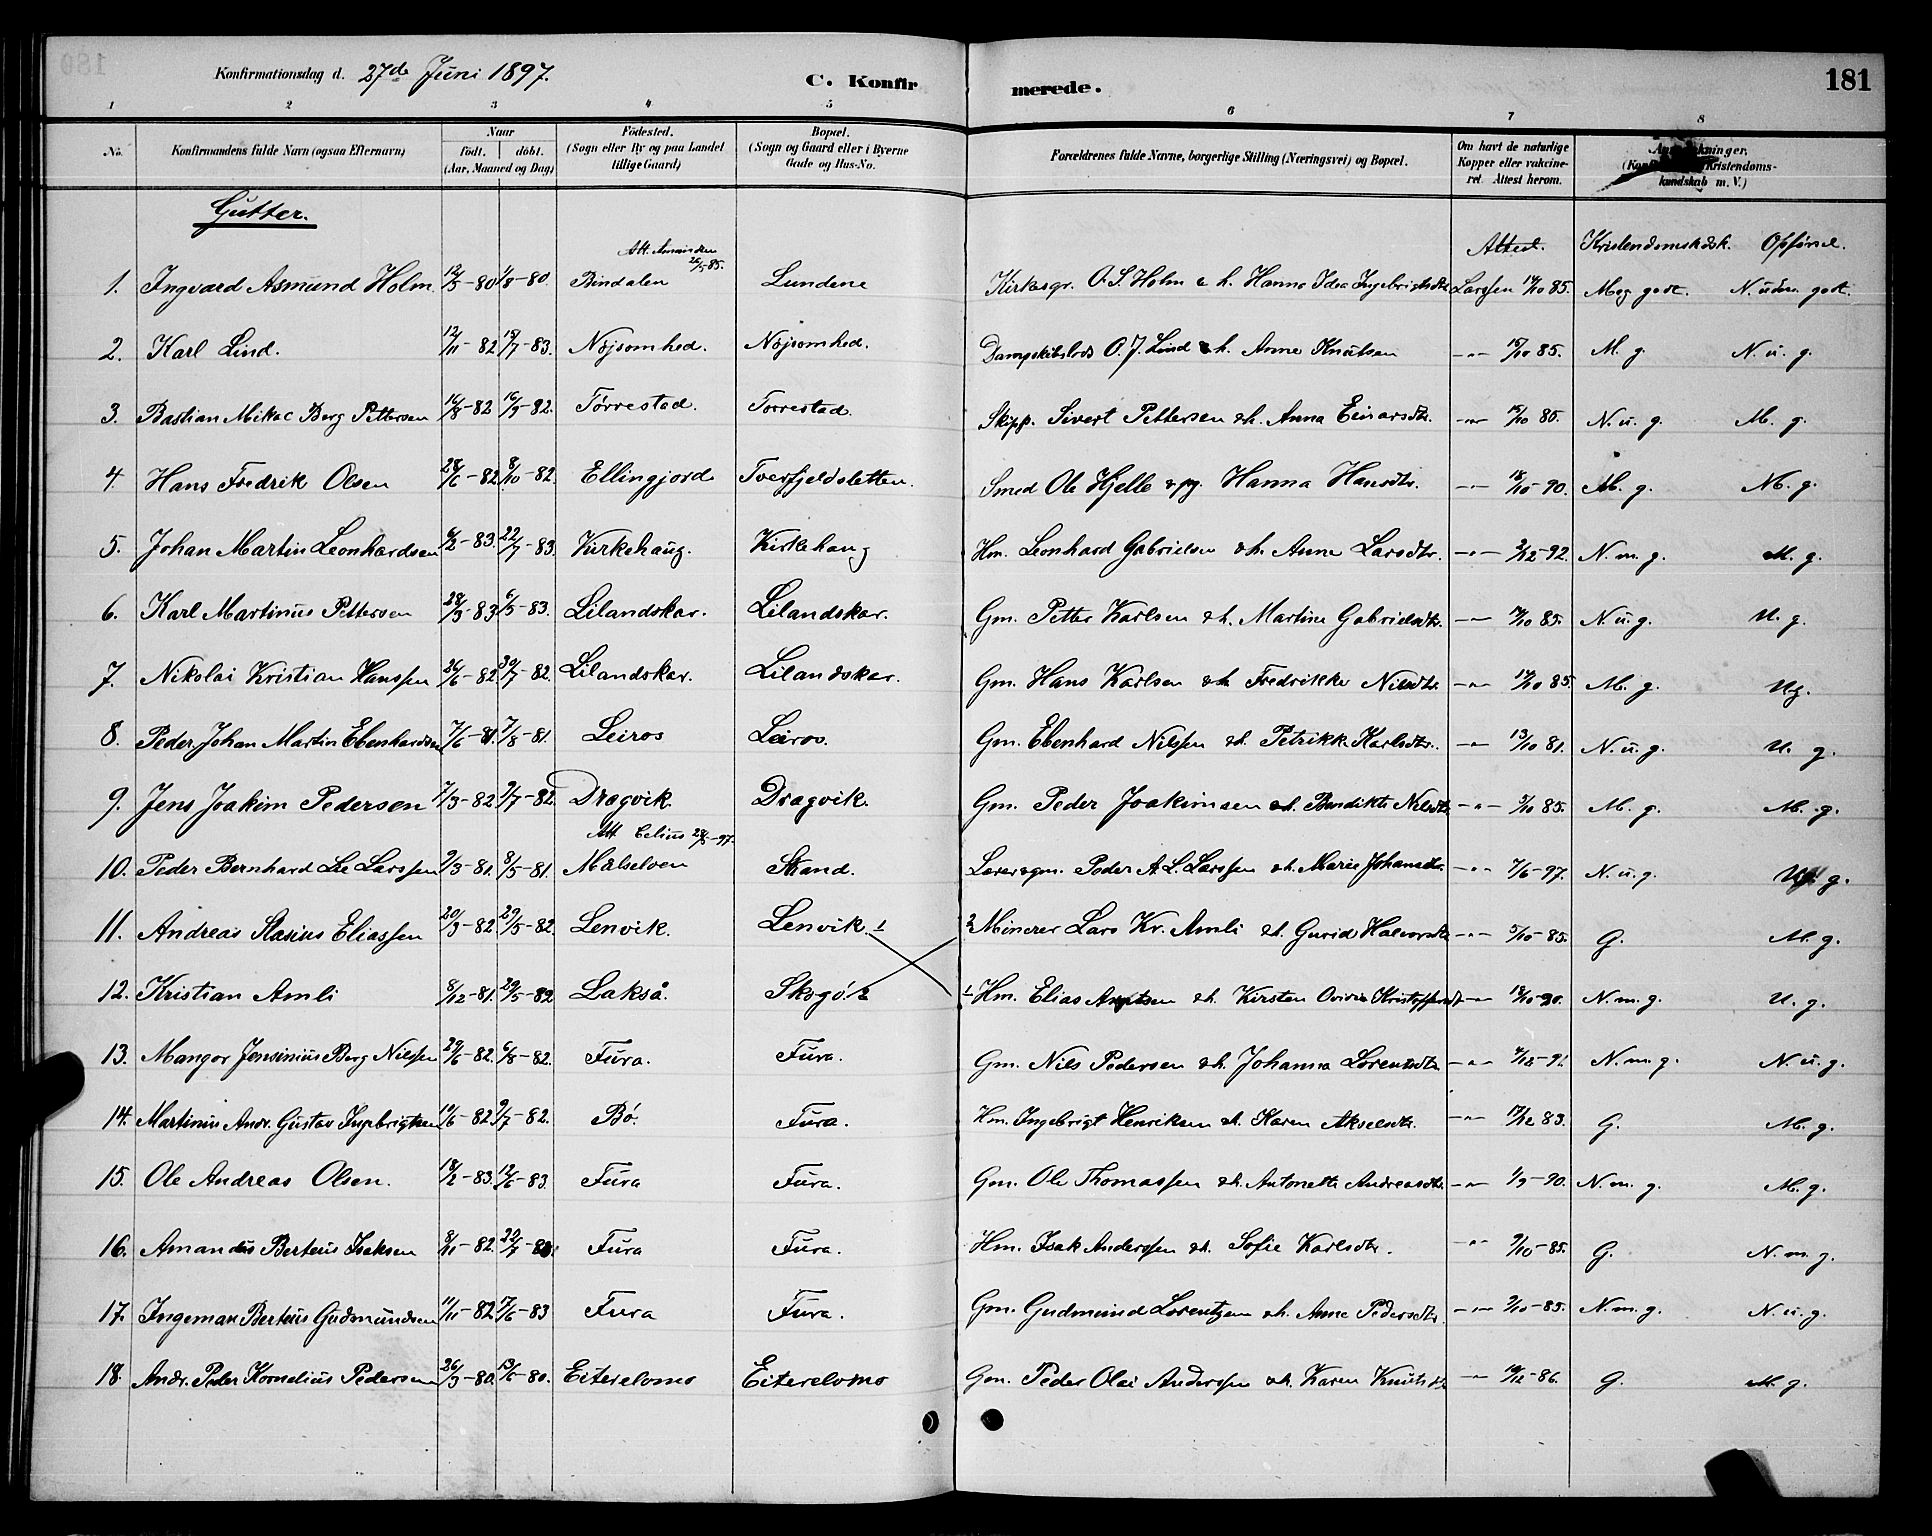 181
Konfirmationsdag d. 27de Juni 1897.
C. Konfir merede.
1 2 3 4 5 6 7 8
No. Konfirmandens fulde Navn (ogsaa Efternavn) Naar født. døbt. (Aar, Maaned og Dag) Födested. (Sogn eller By og paa Landet tillige Gaard) Bopæl. (Sogn og Gaard eller i Byerne Gade og Hus-No. Forældrenes fulde Navne, borgerlige Stilling (Næringsvei) og Bopæl. Om havt de naturlige Kopper eller vakcineret. Attest herom. kundskab m. V.)
Gutter.
Attest. Kristendomskdsk. Opførsel.
Att. 26/5 85.
1. Ingvard Asmund Holm 12/5-80 1/8-80. Bindalen Lundene Kirkesgr. O. S. Holm & h. Hanna Idea Ingebrigtsdtr Larssen 14/10 85. Meg godt. N. udm. godt.
2. Karl Lind. 12/11-82 15/7-83. Nøjsomhed. Nøjsomhed. Dampskibslods O. J. Lind & h. Anne Knutsen -"- 15/10 85. M. g. N. u. g.
3. Bastian Mikac Berg Pettersen 14/8-82 16/9-82. Tørrestad. Torrestad. Skipp. Sivert Pettersen & h. Anna Einarsdtr. -"- 15/10 85. N. u. g. M. g.
4. Hans Fredrik Olsen 28/6-82 8/10-82. Ellingjord Tverfjeldsletten. Smed Ole Hjelle & pg. Hanna Hansdtr. -"- 18/10-90. M. g. M. g.
5. Johan Martin Leonhardsen 6/2-83. 22/7-83. Kirkehaug. Kirkehaug Hm. Leonhard Gabrielsen & h. Anne Larsdtr. -"- 2/12-92. N. m. g. M. g.
6. Karl Martinus Pettersen 28/3-83 6/5-83. Lilandskar. Lilandskar. Gm. Petter Karlsen & h. Martine Gabrielsdtr. -"- 14/10 85. N. u. g. U. g.
7. Nikolai Kristian Hanssen 26/6-82. 30/7-82. Lilandskar. Lilandskar. Gm. Hans Karlsen & h. Fredrikke Nilsdtr. -"- 14/10 85. M. g. Ug.
8. Peder Johan Martin Ebenhardsen 7/6-81. 7/8-81. Leiros Leiros. Gm. Ebenhard Nilssen & h. Petrikke Karlsdtr. -"- 13/10 81. N. u. g. U. g.
9. Jens Joakim Pedersen 7/3-82. 9/7-82. Drægvik. Drægvik. Gm. Peder Joakimsen & h. Bendikte Nilsdtr -"- 5/10 85. M. g. M. g.
Att. Celius 28/5-97.
10. Peder Bernhard Lie Larssen 9/3-81. 8/5-81. Mælselven Strand. Lærer & gm. Peder A. L. Larssen & h. Marie Johansdtr. -"- 7/6-97. N. u. g. g.
11. Andreas Stasius Eliassen 20/3-82. 29/5-82. Lenvik. Lenvik. 1 2 Minerer Lars Kr. Amli & h. Gurid Halvorsdtr -"- 5/10-85. G. M. g.
12. Kristian Amli 8/12-81. 29/5-82 Lakså. Skogø. 2 1 Hm. Elias & h. Kirsten Kristoffersdtr -"- 18/10-90. N. m. g. U. g.
13. Mangor Jensinius Berg Nilssen 29/6-82. 6/8-82. Fura. Fura. Gm. Nils Pedersen & h. Johanna Lorentsdtr -"- 4/12-91. N. m. g. N. u. g.
14. Martinus Andr. Gustav Ingebrigtsen 10/6-82. 9/7-82. Bø. Fura. Hm. Ingebrigt Henriksen & h. Karen Akselsdtr. -"- 17/12 83. G. M. g.
15. Ole Andreas Olsen. 18/2-83. 12/6-83. Fura Fura. Gm. Ole Thomassen & h. Antonette Andreasdtr. -"- 1/9-90. N. m. g. M. g.
16. Amandus Berteus Isaksen 8/11-82. 22/7-83. Fura Fura. Hm. Isak Anderssen & h. Sofie Karlsdtr. -"- 9/10-85. G. N. m. g.
17. Ingeman Berteus Gudmundsen 11/11-82 17/6-83 Fura Fura. Gm. Gudmund Lorentzen & h. Anne Pedersdtr. -"- 9/10-85. N. m. g. N. u. g.
18. Andr. Peder Kornelius Pedersen 26/3-80. 13/6-80. Eiterelvmo Eiterelvmo Gm. Peder Olai Anderssen & h. Karen Knutsdtr -"- 10/12-86. G. M. g.